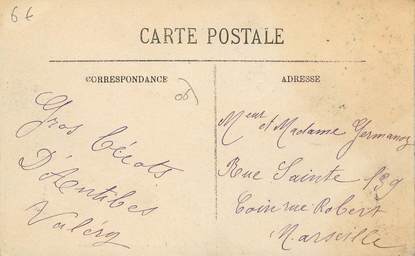 6€
CARTE POSTALE
CORRESPONDANCE
ADRESSE
Gros bécots
D'Antibes
Valéry
Meur et Madame Germanoz
Rue Sainte 139
Coin rue Robert
Marseille